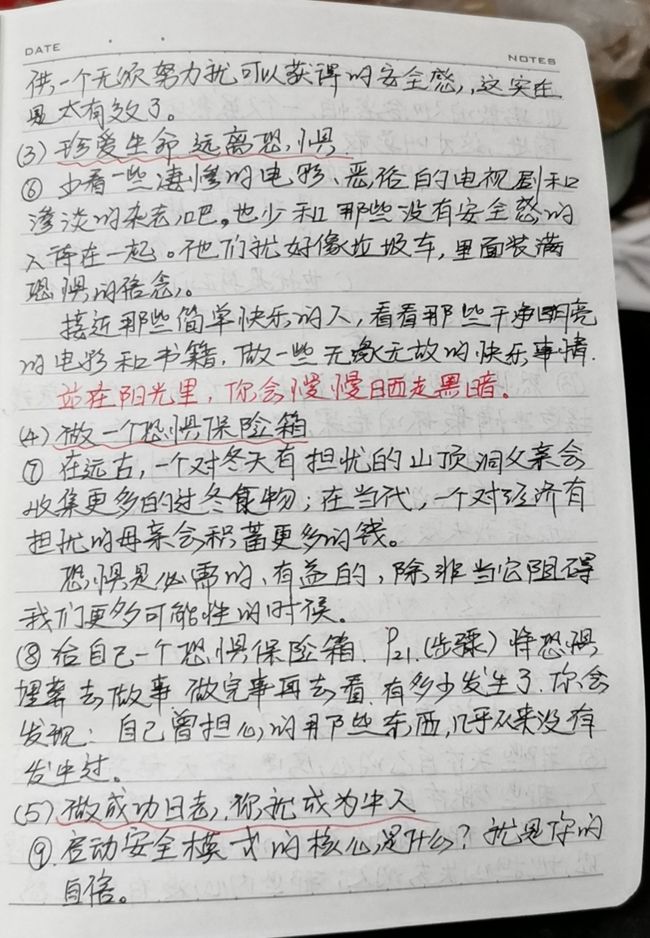 DATE
NOTES
供一个无须努力就可以获得的安全感,这实在
是太有效了。
(3) 珍爱生命 远离恐惧
⑥ 少看一些凄惨的电影、恶俗的电视剧和
渗淡的杂志吧。也少和那些没有安全感的
人待在一起。他们就好像垃圾车,里面装满
恐惧的信念。
接近那些简单快乐的人,看看那些干净明亮
的电影和书籍,做一些无缘无故的快乐事情.
站在阳光里,你会慢慢晒走黑暗。
(4) 做一个恐惧保险箱
⑦ 在远古,一个对冬天有担忧的山顶洞父亲会
收集更多的过冬食物;在当代,一个对经济有
担忧的母亲会积蓄更多的钱。
恐惧是必需的、有益的,除非当它阻碍
我们更多可能性的时候。
⑧ 给自己一个恐惧保险箱. P21.(步骤) 将恐惧
埋葬去做事 做完事再去看.有多少发生了.你会
发现:自己曾担心的那些东西,几乎从来没有
发生过。
(5) 做成功日志,你就成为牛人
⑨ 启动安全模式的核心是什么?就是你的
自信。